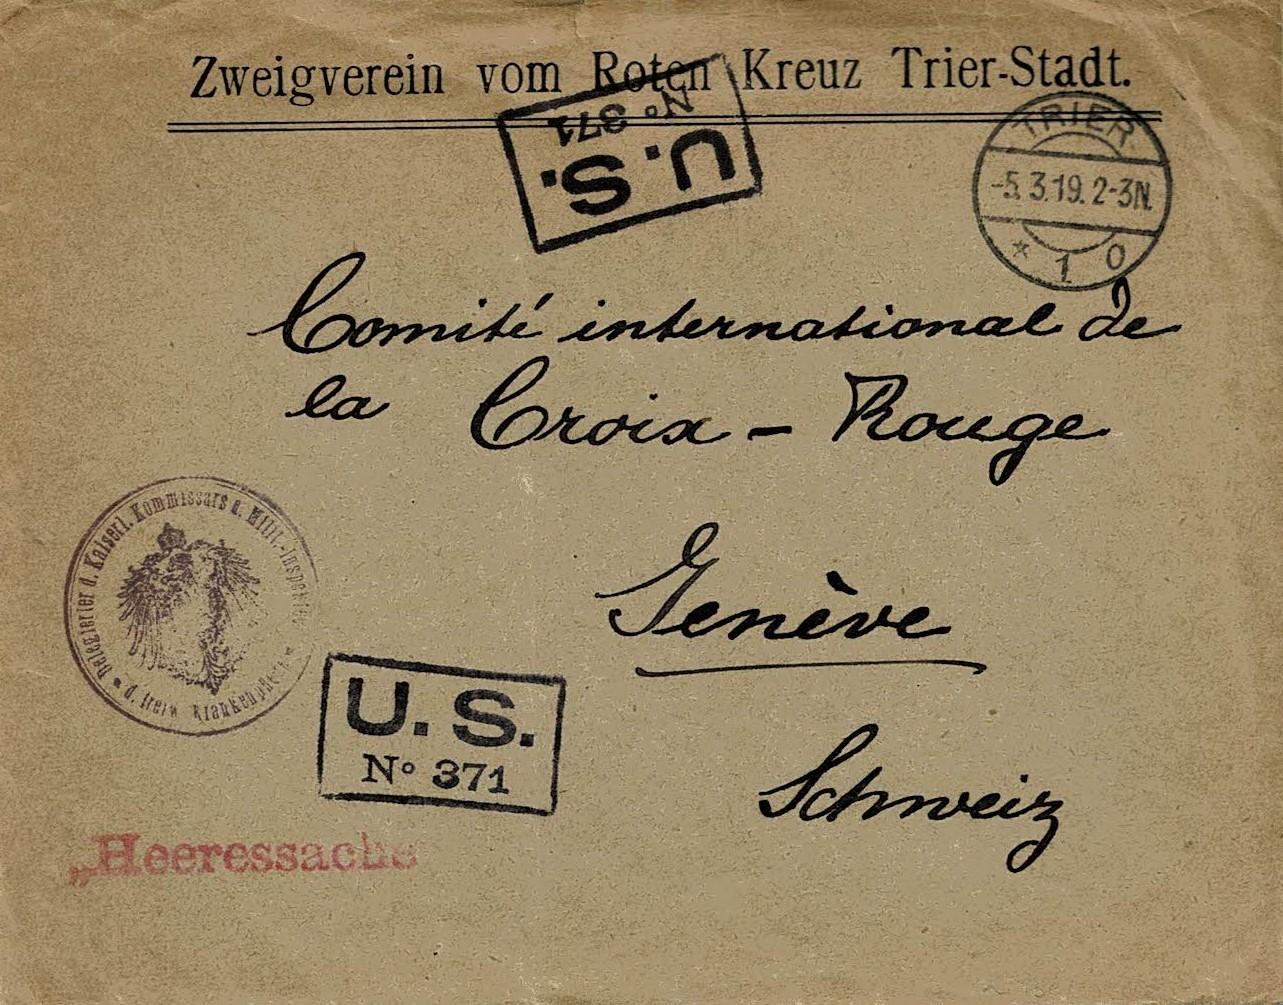 Zweigverein vom Roten Kreuz Trier-Stadt.
U.S.
Nº 371
TRIER
-5.3.19.2-3N.
* 1 o
Comité international de
la Croix-Rouge
Genève
Schweiz
Delegierter d. Kaiserl. Kommissars u. Milit.-Inspekteurs
* d. freiw. Krankenpflege *
U.S.
Nº 371
„Heeressache